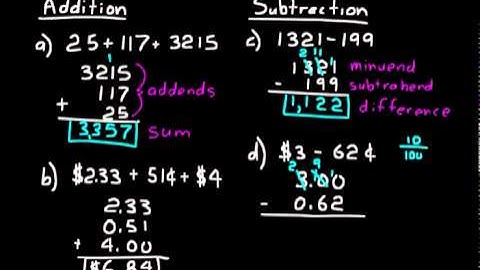 Addition
a) 25 + 117 + 3215
1
3215
117
+ 25
3,357
addends
sum
b) $2.33 + 51¢ + $4
2.33
0.51
+ 4.00
$6.84
Subtraction
c) 1321 - 199
2 11
1321
- 199
1,122
minuend
subtrahend
difference
d) $3 - 62¢
10
100
2 9
3.00
- 0.62